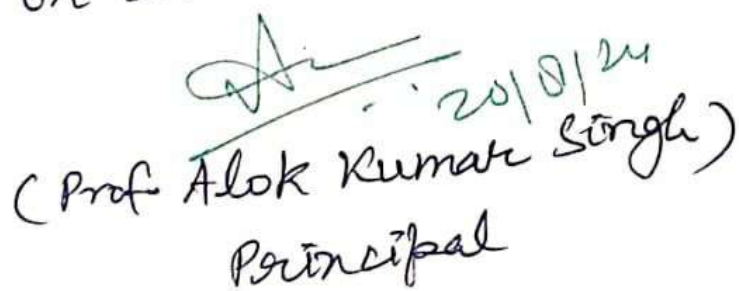 20/8/24
(Prof Alok Kumar Singh)
Principal